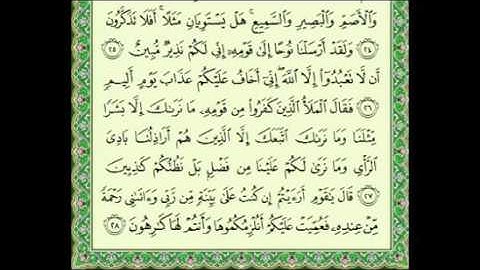 وَالْأَصَمِّ وَالْبَصِيرِ وَالسَّمِيعِ ۚ هَلْ يَسْتَوِيَانِ مَثَلًا ۚ أَفَلَا تَذَكَّرُونَ
٢٤ وَلَقَدْ أَرْسَلْنَا نُوحًا إِلَىٰ قَوْمِهِ إِنِّي لَكُمْ نَذِيرٌ مُّبِينٌ ٢٥
أَن لَّا تَعْبُدُوا إِلَّا اللَّهَ ۖ إِنِّي أَخَافُ عَلَيْكُمْ عَذَابَ يَوْمٍ أَلِيمٍ
٢٦ فَقَالَ الْمَلَأُ الَّذِينَ كَفَرُوا مِن قَوْمِهِ مَا نَرَاكَ إِلَّا بَشَرًا
مِّثْلَنَا وَمَا نَرَاكَ اتَّبَعَكَ إِلَّا الَّذِينَ هُمْ أَرَاذِلُنَا بَادِيَ
الرَّأْيِ وَمَا نَرَىٰ لَكُمْ عَلَيْنَا مِن فَضْلٍ بَلْ نَظُنُّكُمْ كَاذِبِينَ
٢٧ قَالَ يَا قَوْمِ أَرَأَيْتُمْ إِن كُنتُ عَلَىٰ بَيِّنَةٍ مِّن رَّبِّي وَآتَانِي رَحْمَةً
مِّنْ عِندِهِ فَعُمِّيَتْ عَلَيْكُمْ أَنُلْزِمُكُمُوهَا وَأَنتُمْ لَهَا كَارِهُونَ ٢٨